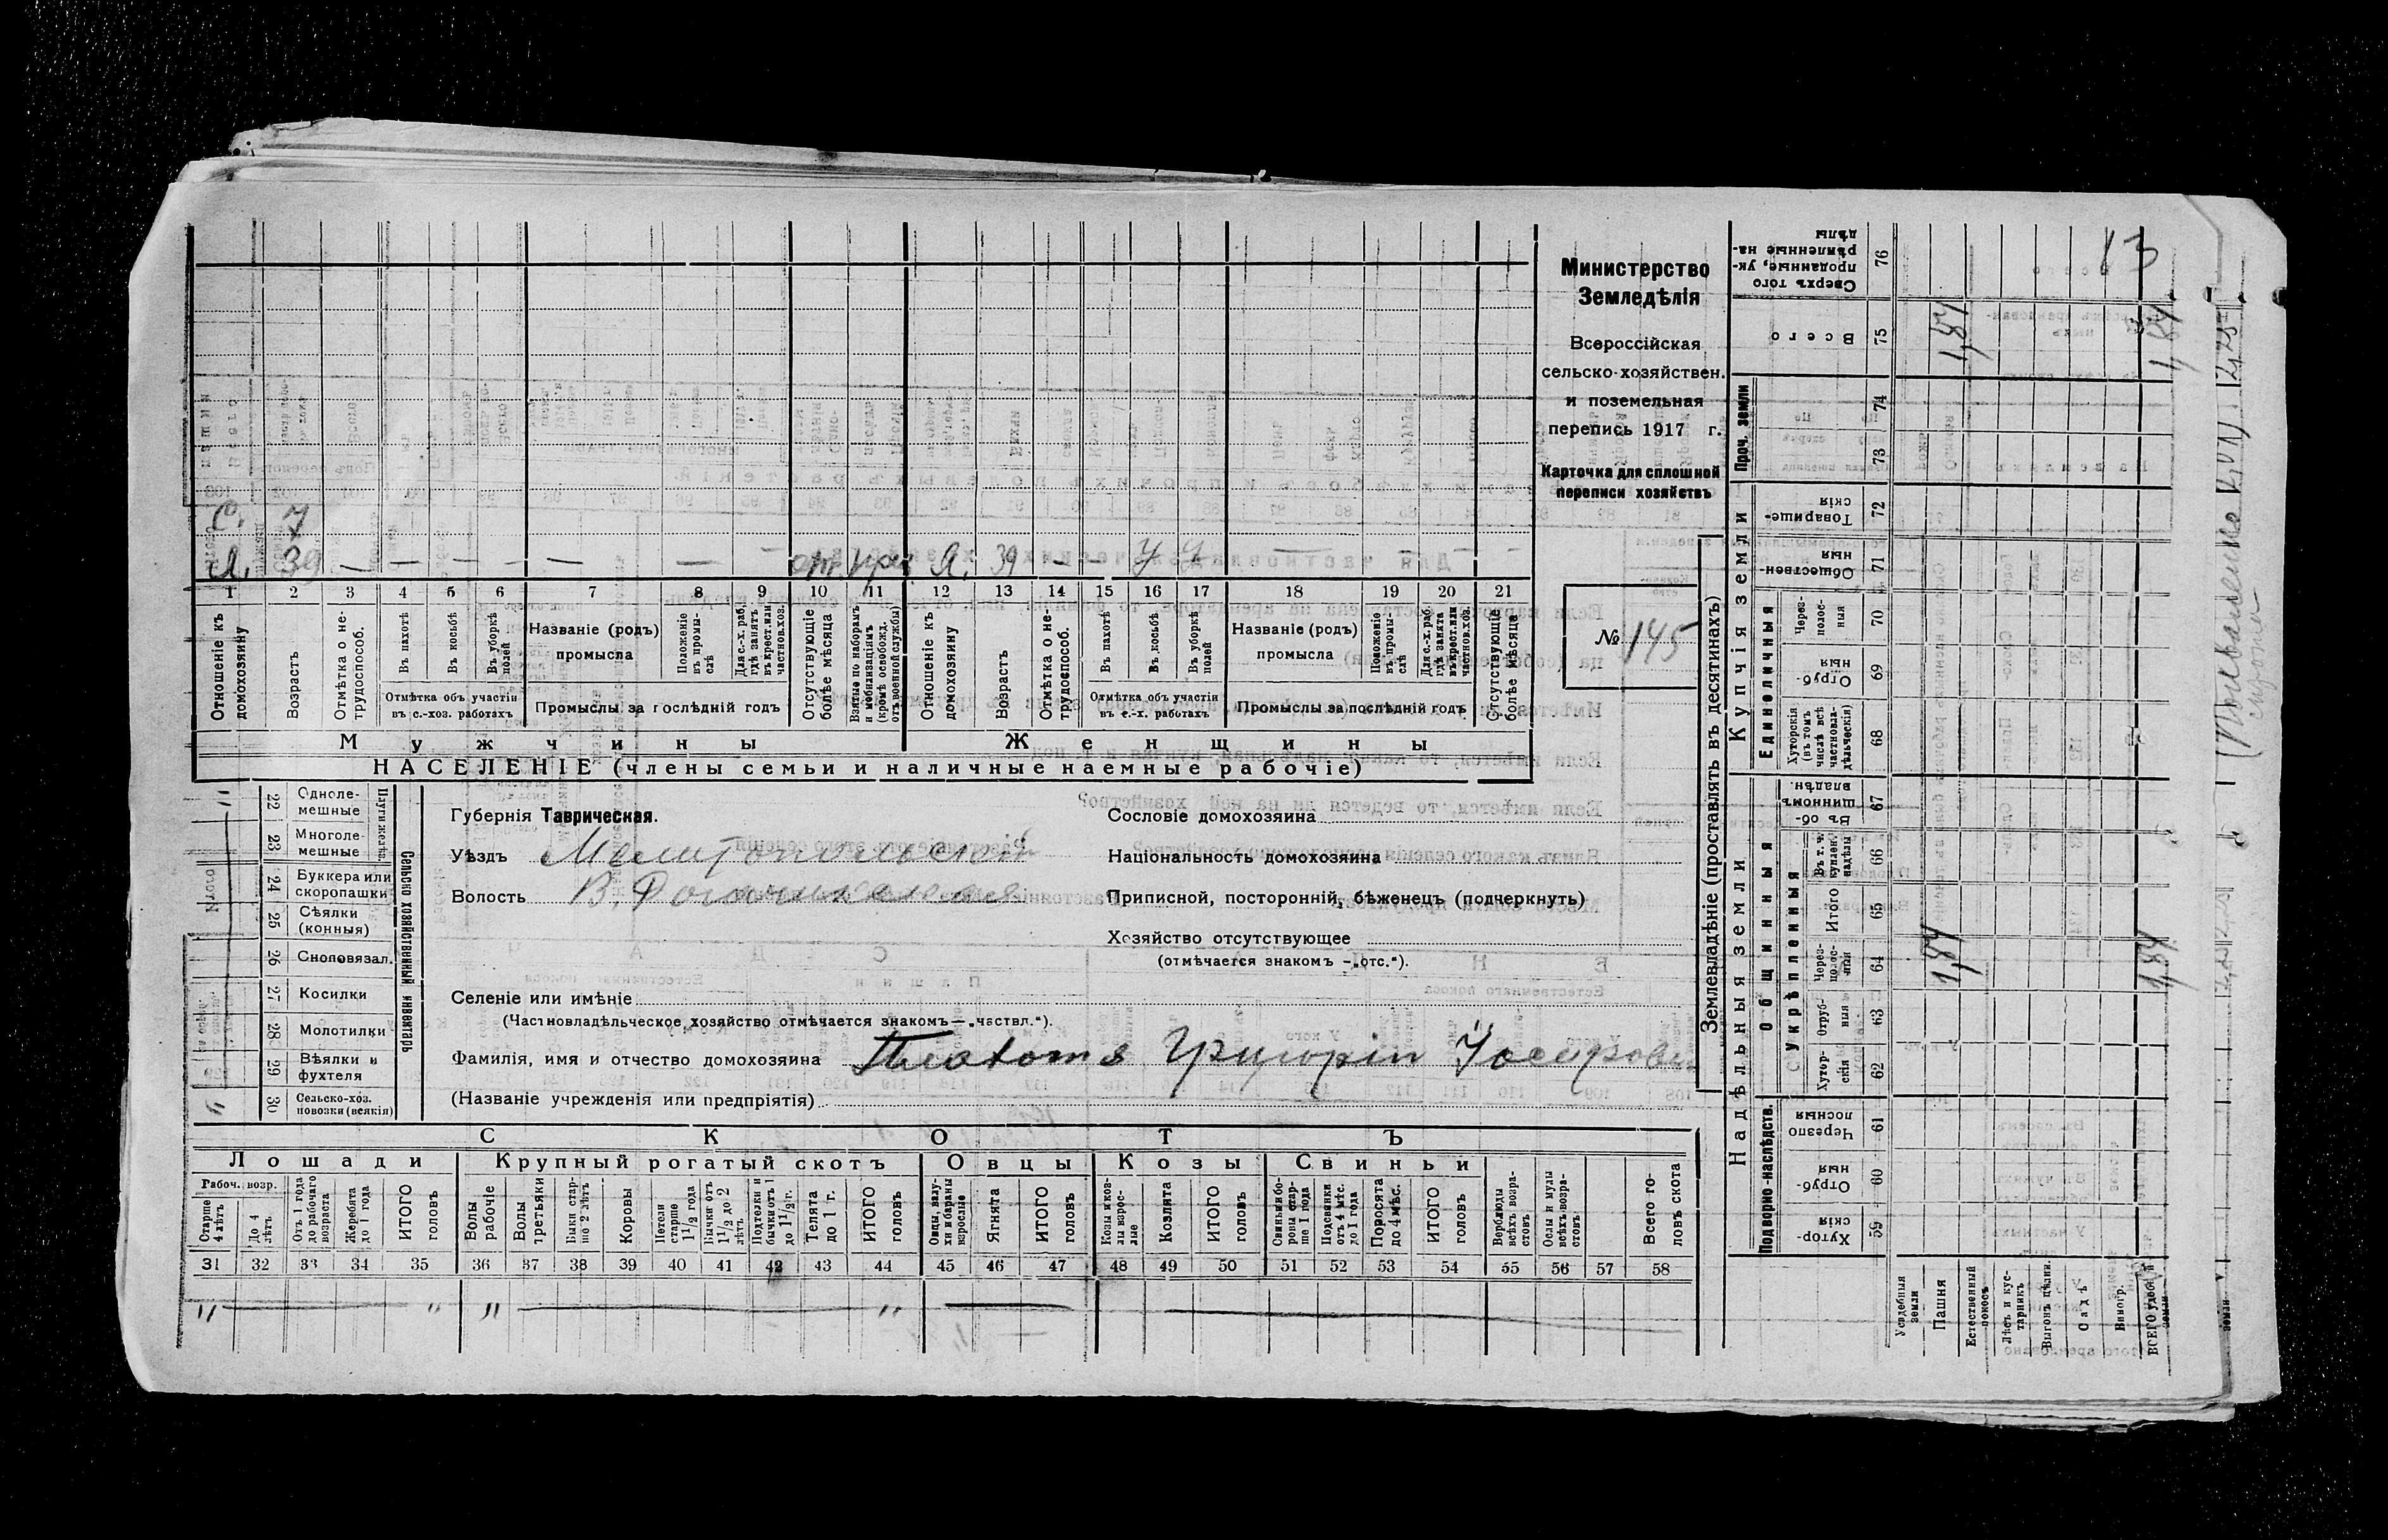 13
Министерство
Земледѣлія
Всероссійская
сельско-хозяйствен.
и поземельная
перепись 1917 г.
Карточка для сплошной
переписи хозяйствъ
№ 145
С. 7
Я. 39 — — — — — — отс. Я. 39 — — У У — — — —
1 2 3 4 5 6 7 8 9 10 11 12 13 14 15 16 17 18 19 20 21
Отношеніе къ домохозяину
Возрастъ
Отмѣтка о нетрудоспособ.
Въ пахотѣ
Въ косьбѣ
Въ уборкѣ полей
Отмѣтка объ участіи въ с.-хоз. работахъ
Названіе (родъ) промысла
Положеніе въ промыслѣ
Для с.-х. раб. гдѣ занятъ въ крест. или частнов. хоз.
Промыслы за послѣдній годъ
Отсутствующіе болѣе мѣсяца
Взятые по наборамъ и мобилизаціямъ (кромѣ освобожд. отъ военной службы)
Отношеніе къ домохозяину
Возрастъ
Отмѣтка о нетрудоспособ.
Въ пахотѣ
Въ косьбѣ
Въ уборкѣ полей
Отмѣтка объ участіи въ с.-х. работахъ
Названіе (родъ) промысла
Положеніе въ промыслѣ
Для с.-х. раб. гдѣ занята въ крест. или частнов. хоз.
Промыслы за послѣдній годъ
Отсутствующіе болѣе мѣсяца
Мужчины Женщины
НАСЕЛЕНІЕ (члены семьи и наличные наемные рабочіе)
Сельско хозяйственный инвентарь
Плуги желѣз.
22 Одноле-мешные
23 Многоле-мешные
24 Буккера или скоропашки
25 Сѣялки (конныя)
26 Сноповязал.
27 Косилки
28 Молотилки
29 Вѣялки и фухтеля
30 Сельско-хоз. повозки (всякія)
Губернія Таврическая.
Уѣздъ Мелитопольскій
Волость В. Рогачикская
Сословіе домохозяина
Національность домохозяина
Приписной, посторонній, бѣженецъ (подчеркнуть)
Хозяйство отсутствующее
(отмѣчается знакомъ —„отс.“).
Селеніе или имѣніе
(Частновладѣльческое хозяйство отмѣчается знакомъ—„частвл.“).
Фамилія, имя и отчество домохозяина Григорій
(Названіе учрежденія или предпріятія)
СКОТЪ
Лошади Крупный рогатый скотъ Овцы Козы Свиньи
Рабоч. возр.
Старше 4 лѣтъ
До 4 лѣтъ
Отъ 1 года до рабочаго возраста
Жеребята до 1 года
ИТОГО головъ
Волы рабочіе
Волы третьяки
Быки старше 2 лѣтъ
Коровы
Нетели старше 1½ года
Бычки отъ 1½ до 2 лѣтъ
Подтелки и бычки отъ 1 до 1½ г.
Телята до 1 г.
ИТОГО головъ
Овцы, валухи и бараны взрослые
Ягнята
ИТОГО головъ
Козы и козлы взрослые
Козлята
ИТОГО головъ
Свиньи боровы старше 1 года
Подсвинки отъ 4 мѣс. до 1 года
Поросята до 4 мѣс.
ИТОГО головъ
Верблюды всѣхъ возрастовъ
Ослы и мулы всѣхъ возрастовъ
Всего головъ скота
31 32 33 34 35 36 37 38 39 40 41 42 43 44 45 46 47 48 49 50 51 52 53 54 55 56 57 58
Землевладѣніе (проставлять въ десятинахъ)
Надѣльныя земли
Купчія земли
Проч. земли
Подворно-наслѣдств.
Общинныя
Укрѣпленныя
Единоличныя
Сверхъ того проданные, укрѣпленные надѣлы 76
Всего 75 1,84 1,84
74
73
Товарищескія 72
Общественныя 71
Черезполосныя 70
Отрубныя 69
Хуторскія (въ томъ числѣ всѣ частновладѣльческія) 68
Въ общинномъ владѣн. 67
Въ т. ч. куплен. надѣлы 66
Итого 65
Черезполосныя 64 1,84 1,84
Отрубныя 63
Хуторскія 62
Черезполосныя 61
Отрубныя 60
Хуторскія 59
Усадебныя земли
Пашня
Естественный покосъ
Лѣсъ и кустарникъ
Выгонъ цѣлин.
Садъ
Виногр.
ВСЕГО удобн. земли